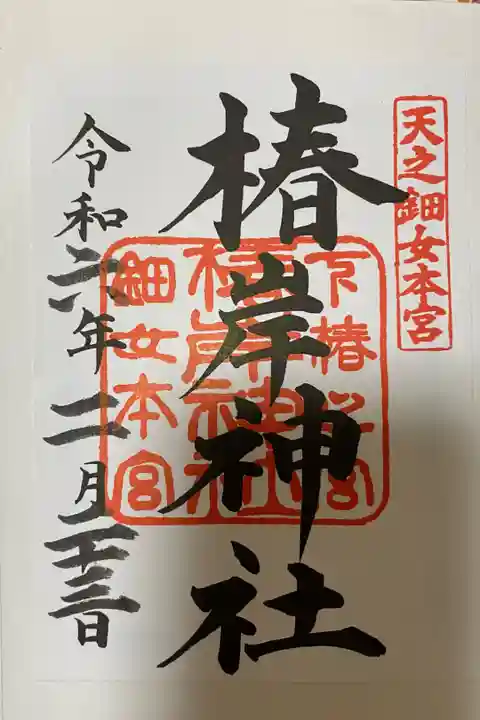 天之鈿女本宮
椿岸神社
下椿宮
椿岸神社
鈿女本宮
令和六年二月二十三日